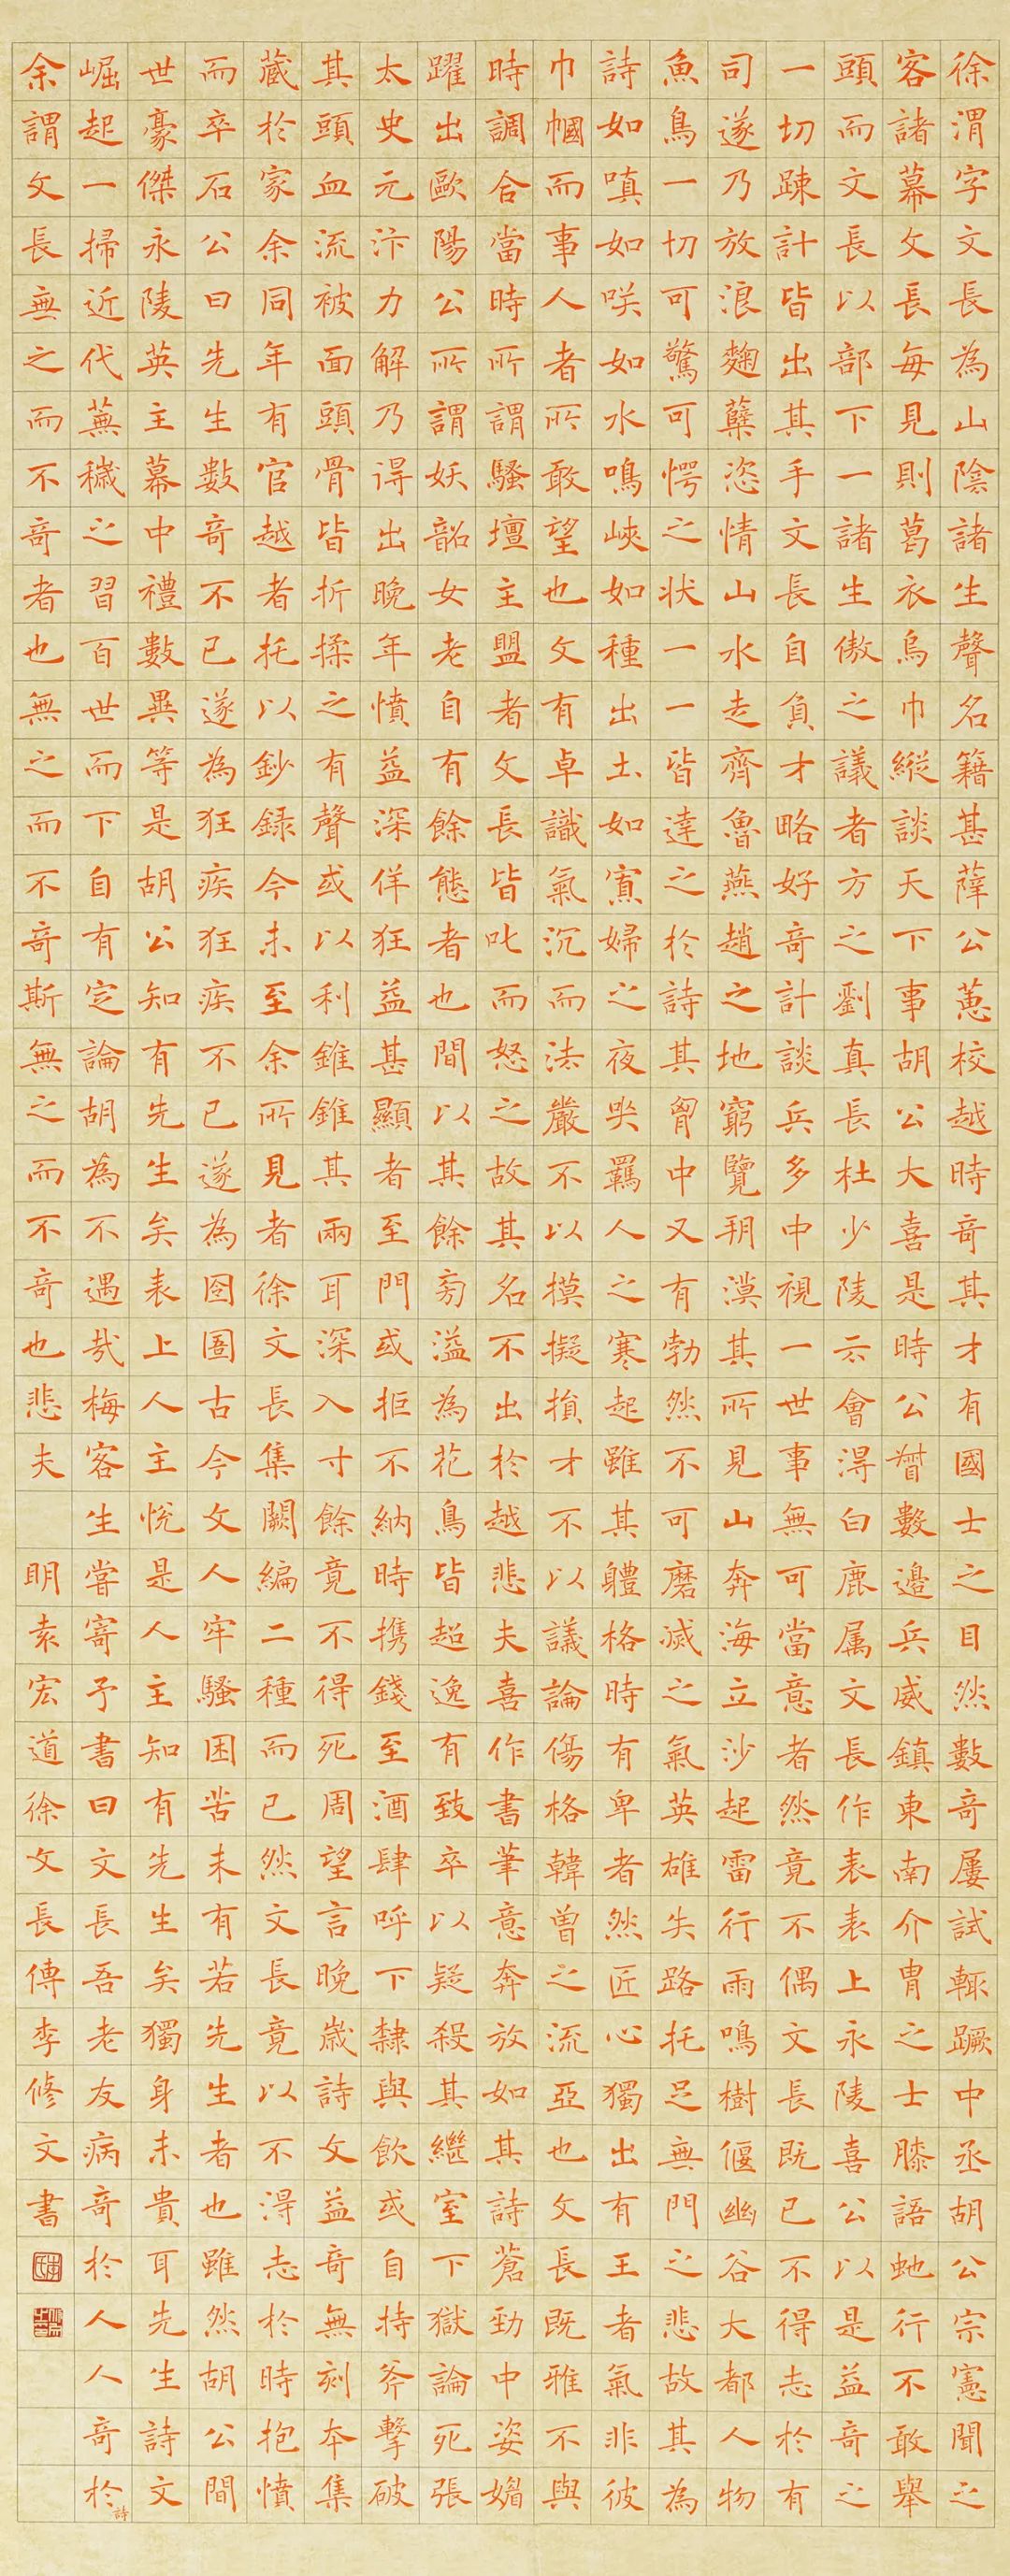 徐渭字文長為山陰諸生聲名籍甚薛公蕙校越時奇其才有國士之目然數奇屢試輒蹶中丞胡公宗憲聞之
客諸幕文長每見則葛衣烏巾縱談天下事胡公大喜是時公督數邊兵威鎮東南介冑之士膝語虵行不敢舉
頭而文長以部下一諸生傲之議者方之劉真長杜少陵云會得白鹿属文長作表表上永陵喜公以是益奇之
一切疎計皆出其手文長自負才略好奇計談兵多中視一世事無可當意者然竟不偶文長既已不得志於有
司遂乃放浪麴糵恣情山水走齊魯燕趙之地窮覽朔漠其所見山奔海立沙起雷行雨鳴樹偃幽谷大都人物
魚鳥一切可驚可愕之状一一皆達之於詩其胷中又有勃然不可磨滅之氣英雄失路托足無門之悲故其為
詩如嗔如咲如水鳴峽如種出土如寡婦之夜哭羈人之寒起雖其體格時有卑者然匠心獨出有王者氣非彼
巾幗而事人者所敢望也文有卓識氣沉而法嚴不以摸擬損才不以議論傷格韓曾之流亞也文長既雅不與
時調合當時所謂騷壇主盟者文長皆叱而怒之故其名不出於越悲夫喜作書筆意奔放如其詩蒼勁中姿媚
躍出歐陽公所謂妖韶女老自有餘態者也間以其餘旁溢為花鳥皆超逸有致卒以疑殺其繼室下獄論死張
太史元汴力解乃得出晚年憤益深佯狂益甚顯者至門或拒不納時携錢至酒肆呼下隸與飲或自持斧擊破
其頭血流被面頭骨皆折揉之有聲或以利錐錐其兩耳深入寸餘竟不得死周望言晚歲詩文益奇無刻本集
藏於家余同年有官越者托以鈔録今未至余所見者徐文長集闕編二種而已然文長竟以不得志於時抱憤
而卒石公曰先生數奇不已遂為狂疾狂疾不已遂為囹圄古今文人牢騷困苦未有若先生者也雖然胡公間
世豪傑永陵英主幕中禮數異等是胡公知有先生矣表上人主悅是人主知有先生矣獨身未貴耳先生詩文
崛起一掃近代蕪穢之習百世而下自有定論胡為不遇哉梅客生嘗寄予書曰文長吾老友病奇於人人奇於詩
余謂文長無之而不奇者也無之而不奇斯無之而不奇也悲夫 明袁宏道徐文長傳李修文書